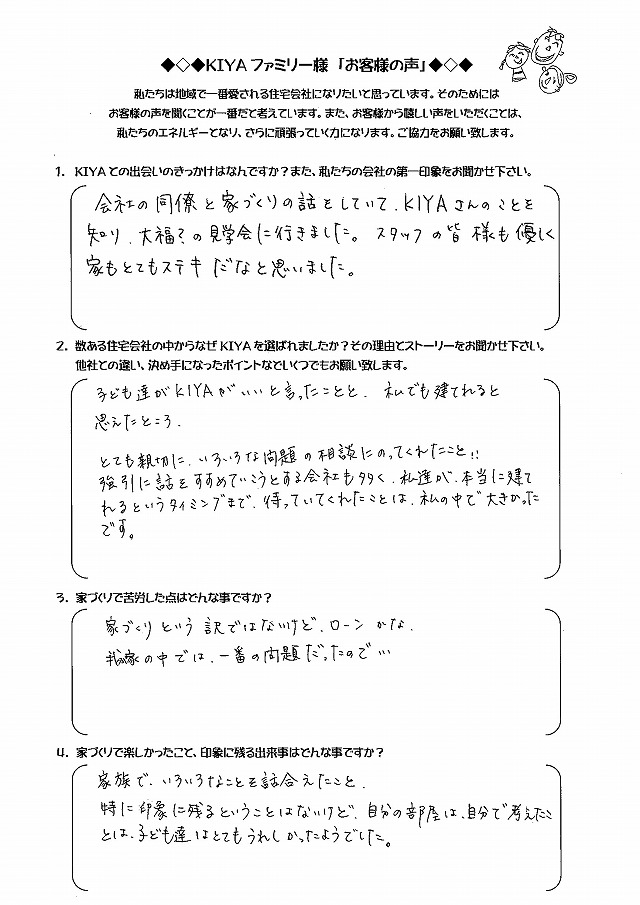 ◆◇◆KIYAファミリー様「お客様の声」◆◇◆
私たちは地域で一番愛される住宅会社になりたいと思っています。そのためには
お客様の声を聞くことが一番だと考えています。また、お客様から嬉しい声をいただくことは、
私たちのエネルギーとなり、さらに頑張っていく力になります。ご協力をお願い致します。
1. KIYAとの出会いのきっかけはなんですか？また、私たちの会社の第一印象をお聞かせ下さい。
会社の同僚と家づくりの話をしていて、KIYAさんのことを
知り、大福?の見学会に行きました。スタッフの皆様も優しく
家もとてもステキだなと思いました。
2. 数ある住宅会社の中からなぜKIYAを選ばれましたか？その理由とストーリーをお聞かせ下さい。
他社との違い、決め手になったポイントなどいくつでもお願い致します。
子ども達がKIYAがいいと言ったことと、私でも建てれると
思えたところ。
とても親切に、いろいろな問題の相談にのってくれたこと!!
強引に話をすすめていこうとする会社も多く、私達が、本当に建て
れるというタイミングまで、待っていてくれたことは、私の中で大きかった
です。
3. 家づくりで苦労した点はどんな事ですか？
家づくりという訳ではないけど、ローンかな。
我家の中では、一番の問題だったので…
4. 家づくりで楽しかったこと、印象に残る出来事はどんな事ですか？
家族で、いろいろなことを話合えたこと。
特に印象に残るということはないけど、自分の部屋は、自分で考えたこ
とは、子ども達はとてもうれしかったようでした。